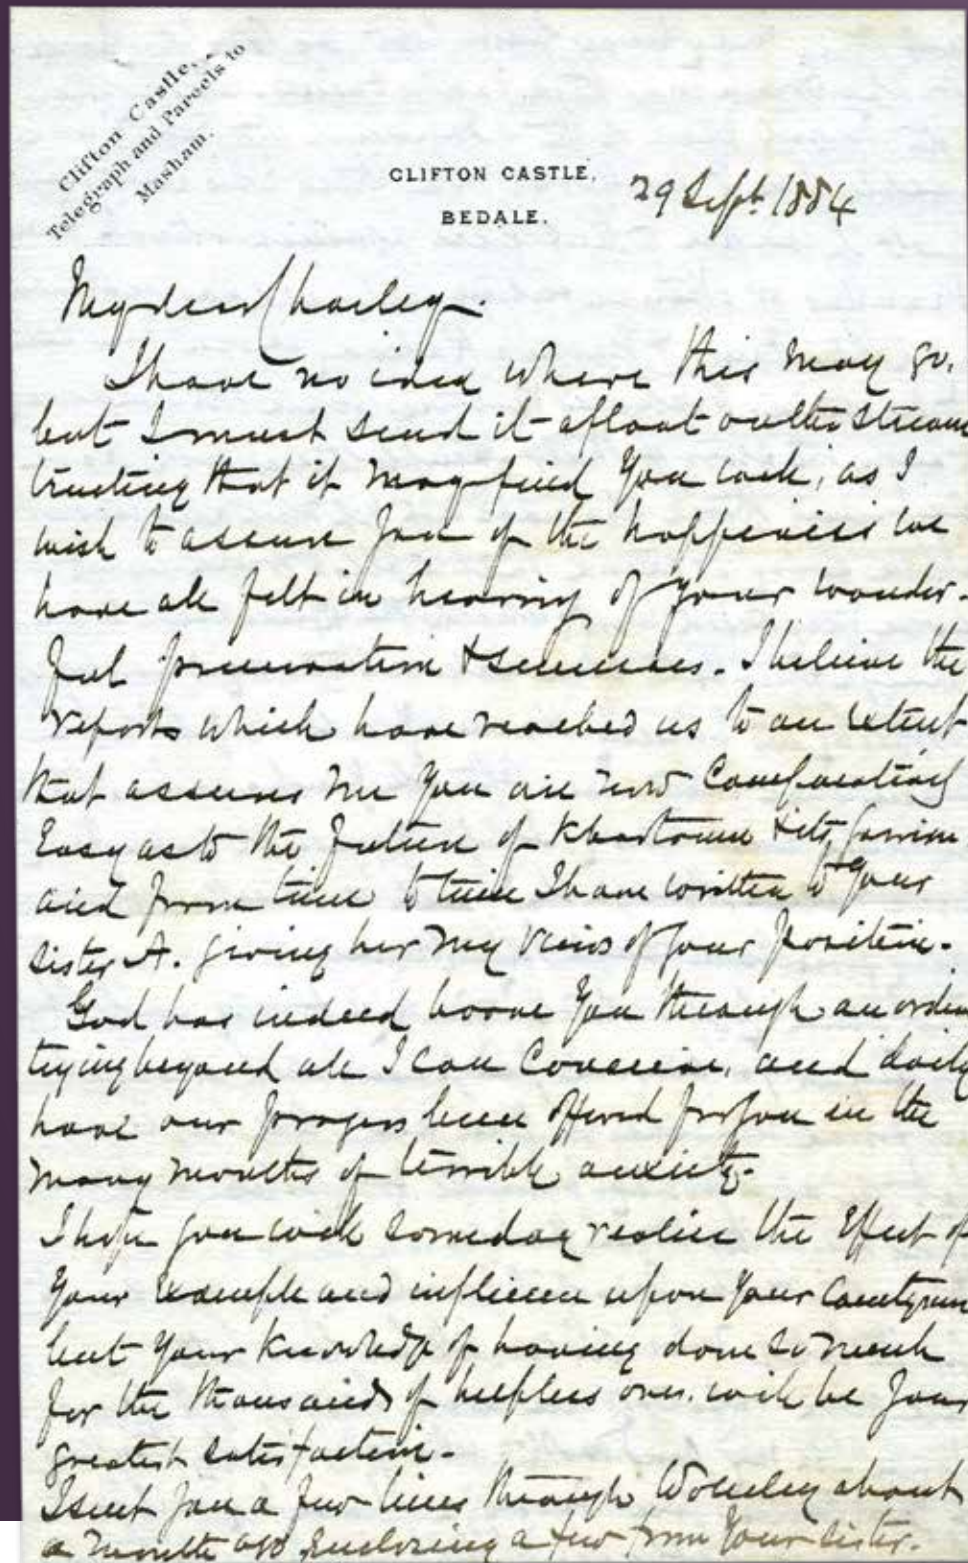 Clifton Castle,
Telegraph and Parcels to
Masham.
CLIFTON CASTLE,
BEDALE.
29 Sept. 1884
My dear Charley.
I have no idea where this may go,
but I must send it afloat on the stream
trusting that it may find you well, as I
wish to assure you of the happiness we
have all felt in hearing of your wonder-
ful preservation & successes. I believe the
reports which have reached us to an extent
that assures me you are now comparatively
Easy as to the future of Khartoum & its garrison
and from time to time I have written to your
sister A. giving her my views of your position.
God has indeed borne you through an ordeal
trying beyond all I can conceive, and daily
have our prayers been offered for you in the
many months of terrible anxiety.
I hope you will someday realise the Effect of
your example and influence upon your Countrymen
but your knowledge of having done so much
for the thousands of helpless ones will be your
greatest satisfaction.
I sent you a few lines through Wolseley about
a month ago enclosing a few from your sister.